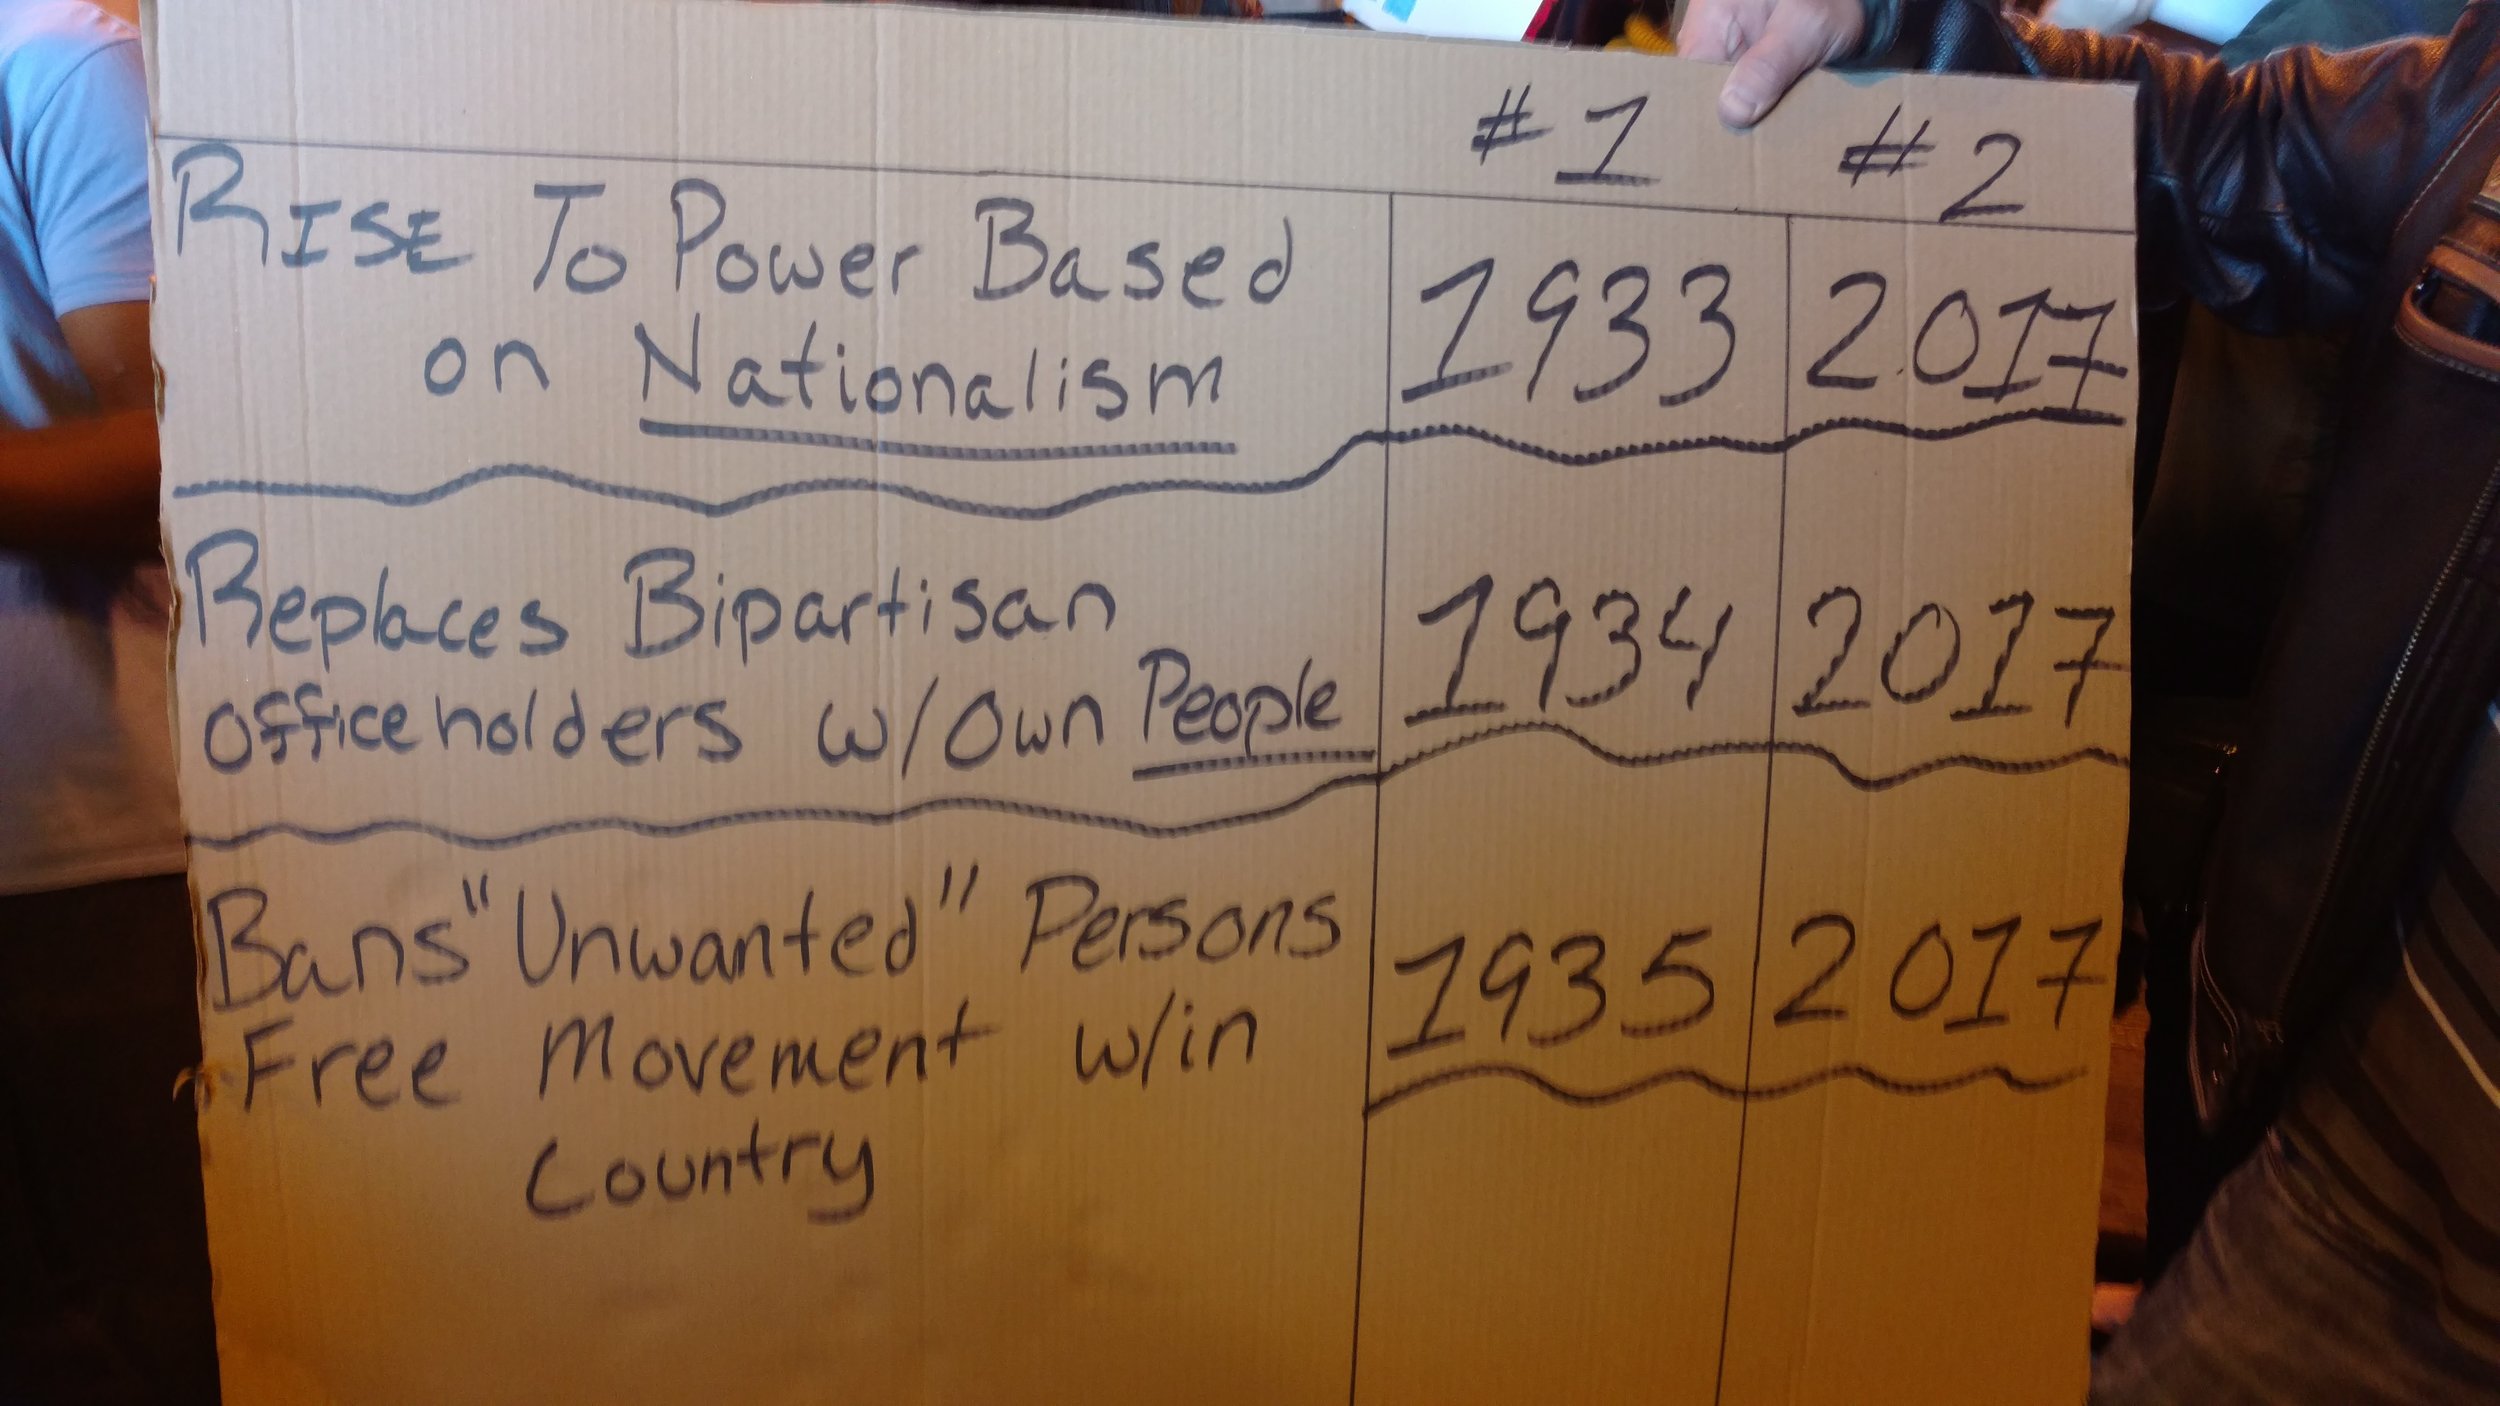 #1 #2
RISE To Power Based
on Nationalism
1933 2017
Replaces Bipartisan
officeholders w/own People
1934 2017
Bans "Unwanted" Persons
Free Movement w/in
Country
1935 2017